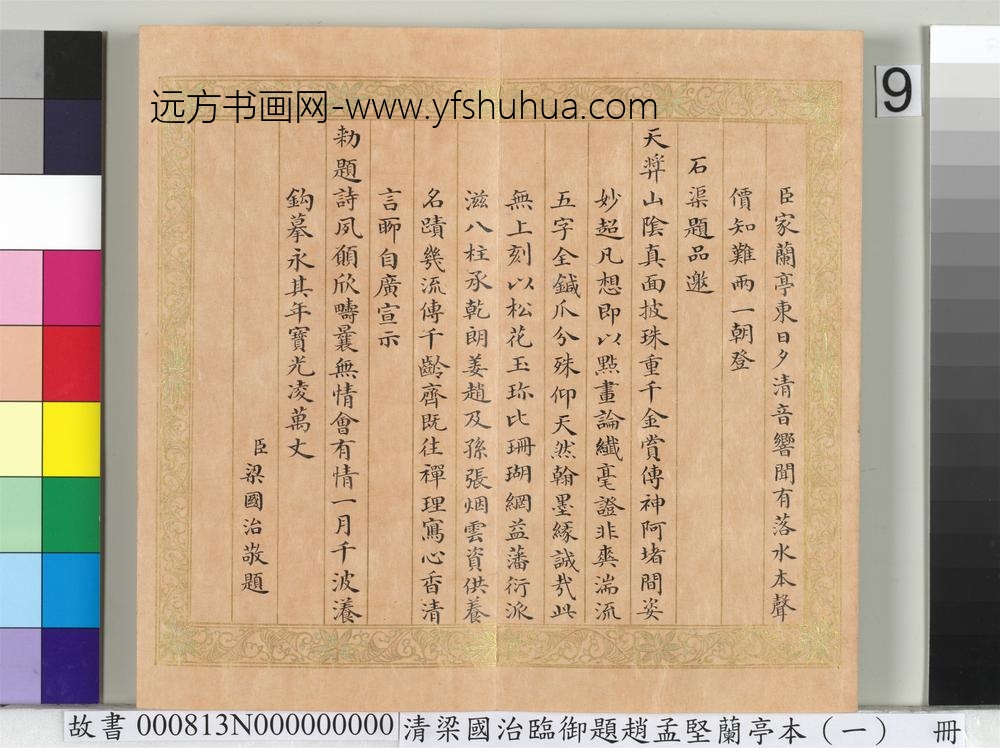 远方书画网-www.yfshuhua.com
9
臣家蘭亭東日夕清音響聞有落水本聲
價知難兩一朝登
石渠題品邀
天弆山陰真面披珠重千金賞傳神阿堵間姿
妙超凡想即以點畫論纖毫證非爽湍流
五字全鋮爪分殊仰天然翰墨緣誠哉此
無上刻以松花玉珎比珊瑚網益藩衍派
滋八柱承乾朗姜趙及孫張烟雲資供養
名蹟幾流傳千齡齊既往禪理寫心香清
言聊自廣宣示
勅題詩夙願欣疇曩無情會有情一月千波瀁
鈎摹永其年寶光凌萬丈
臣梁國治敬題
故書 000813N000000000 清梁國治臨御題趙孟堅蘭亭本（一） 冊